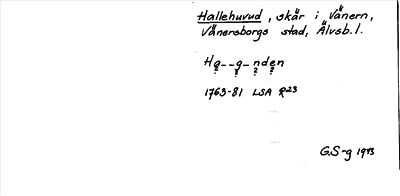 Hallehuvud, skär i Vänern,
Vänersborgs stad, Älvsb. l.
Ha--g-nden
? ? ? ?
1763-81 LSA R23
GS-g 1973